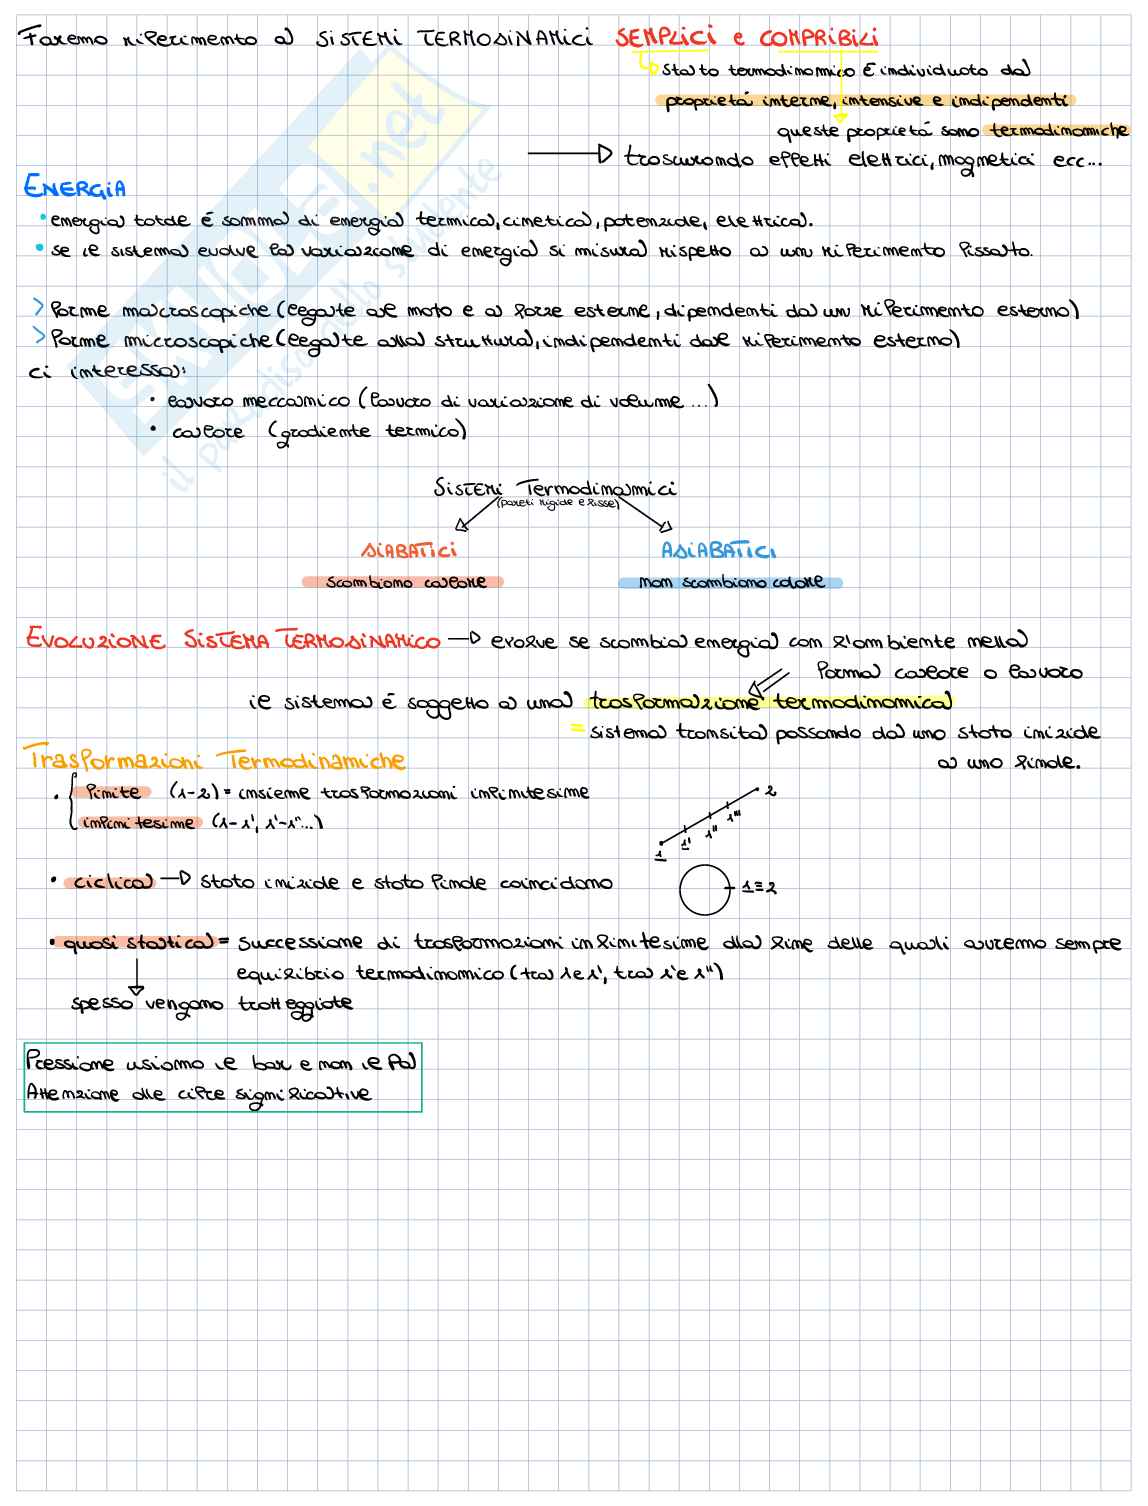 Faremo riferimento a SISTEMI TERMODINAMICI SEMPLICI e COMPRIBILI
Stato termodinamico è individuato da
proprietà interne, intensive e indipendenti
queste proprietà sono termodinamiche
trascurando effetti elettrici, magnetici ecc...
ENERGIA
• energia totale è somma di energia termica, cinetica, potenziale, elettrica.
• se il sistema evolve la variazione di energia si misura rispetto a un riferimento fissato.
> forme macroscopiche (legate al moto e a forze esterne, dipendenti da un riferimento esterno)
> forme microscopiche (legate alla struttura, indipendenti dal riferimento esterno)
ci interessa:
• lavoro meccanico (lavoro di variazione di volume ...)
• calore (gradiente termico)
Sistemi Termodinamici
(pareti rigide e fisse)
DIABATICI ADIABATICI
scambiano calore non scambiano calore
EVOLUZIONE SISTEMA TERMODINAMICO → evolve se scambia energia con l'ambiente nella
forma calore o lavoro
il sistema è soggetto a una trasformazione termodinamica
= sistema transita passando da uno stato iniziale
a uno finale.
Trasformazioni Termodinamiche
• { finite (1-2) = insieme trasformazioni infinitesime
infinitesime (1-1', 1'-1''...)
1 1' 1'' 1''' 2
• ciclica → stato iniziale e stato finale coincidono
1≡2
• quasi statica = successione di trasformazioni infinitesime alla fine delle quali avremo sempre
equilibrio termodinamico (tra 1 e 1', tra 1' e 1'')
spesso vengono tratteggiate
Pressione usiamo il bar e non il Pa
Attenzione alle cifre significative
SKUOLA.net
il paradiso dello studente